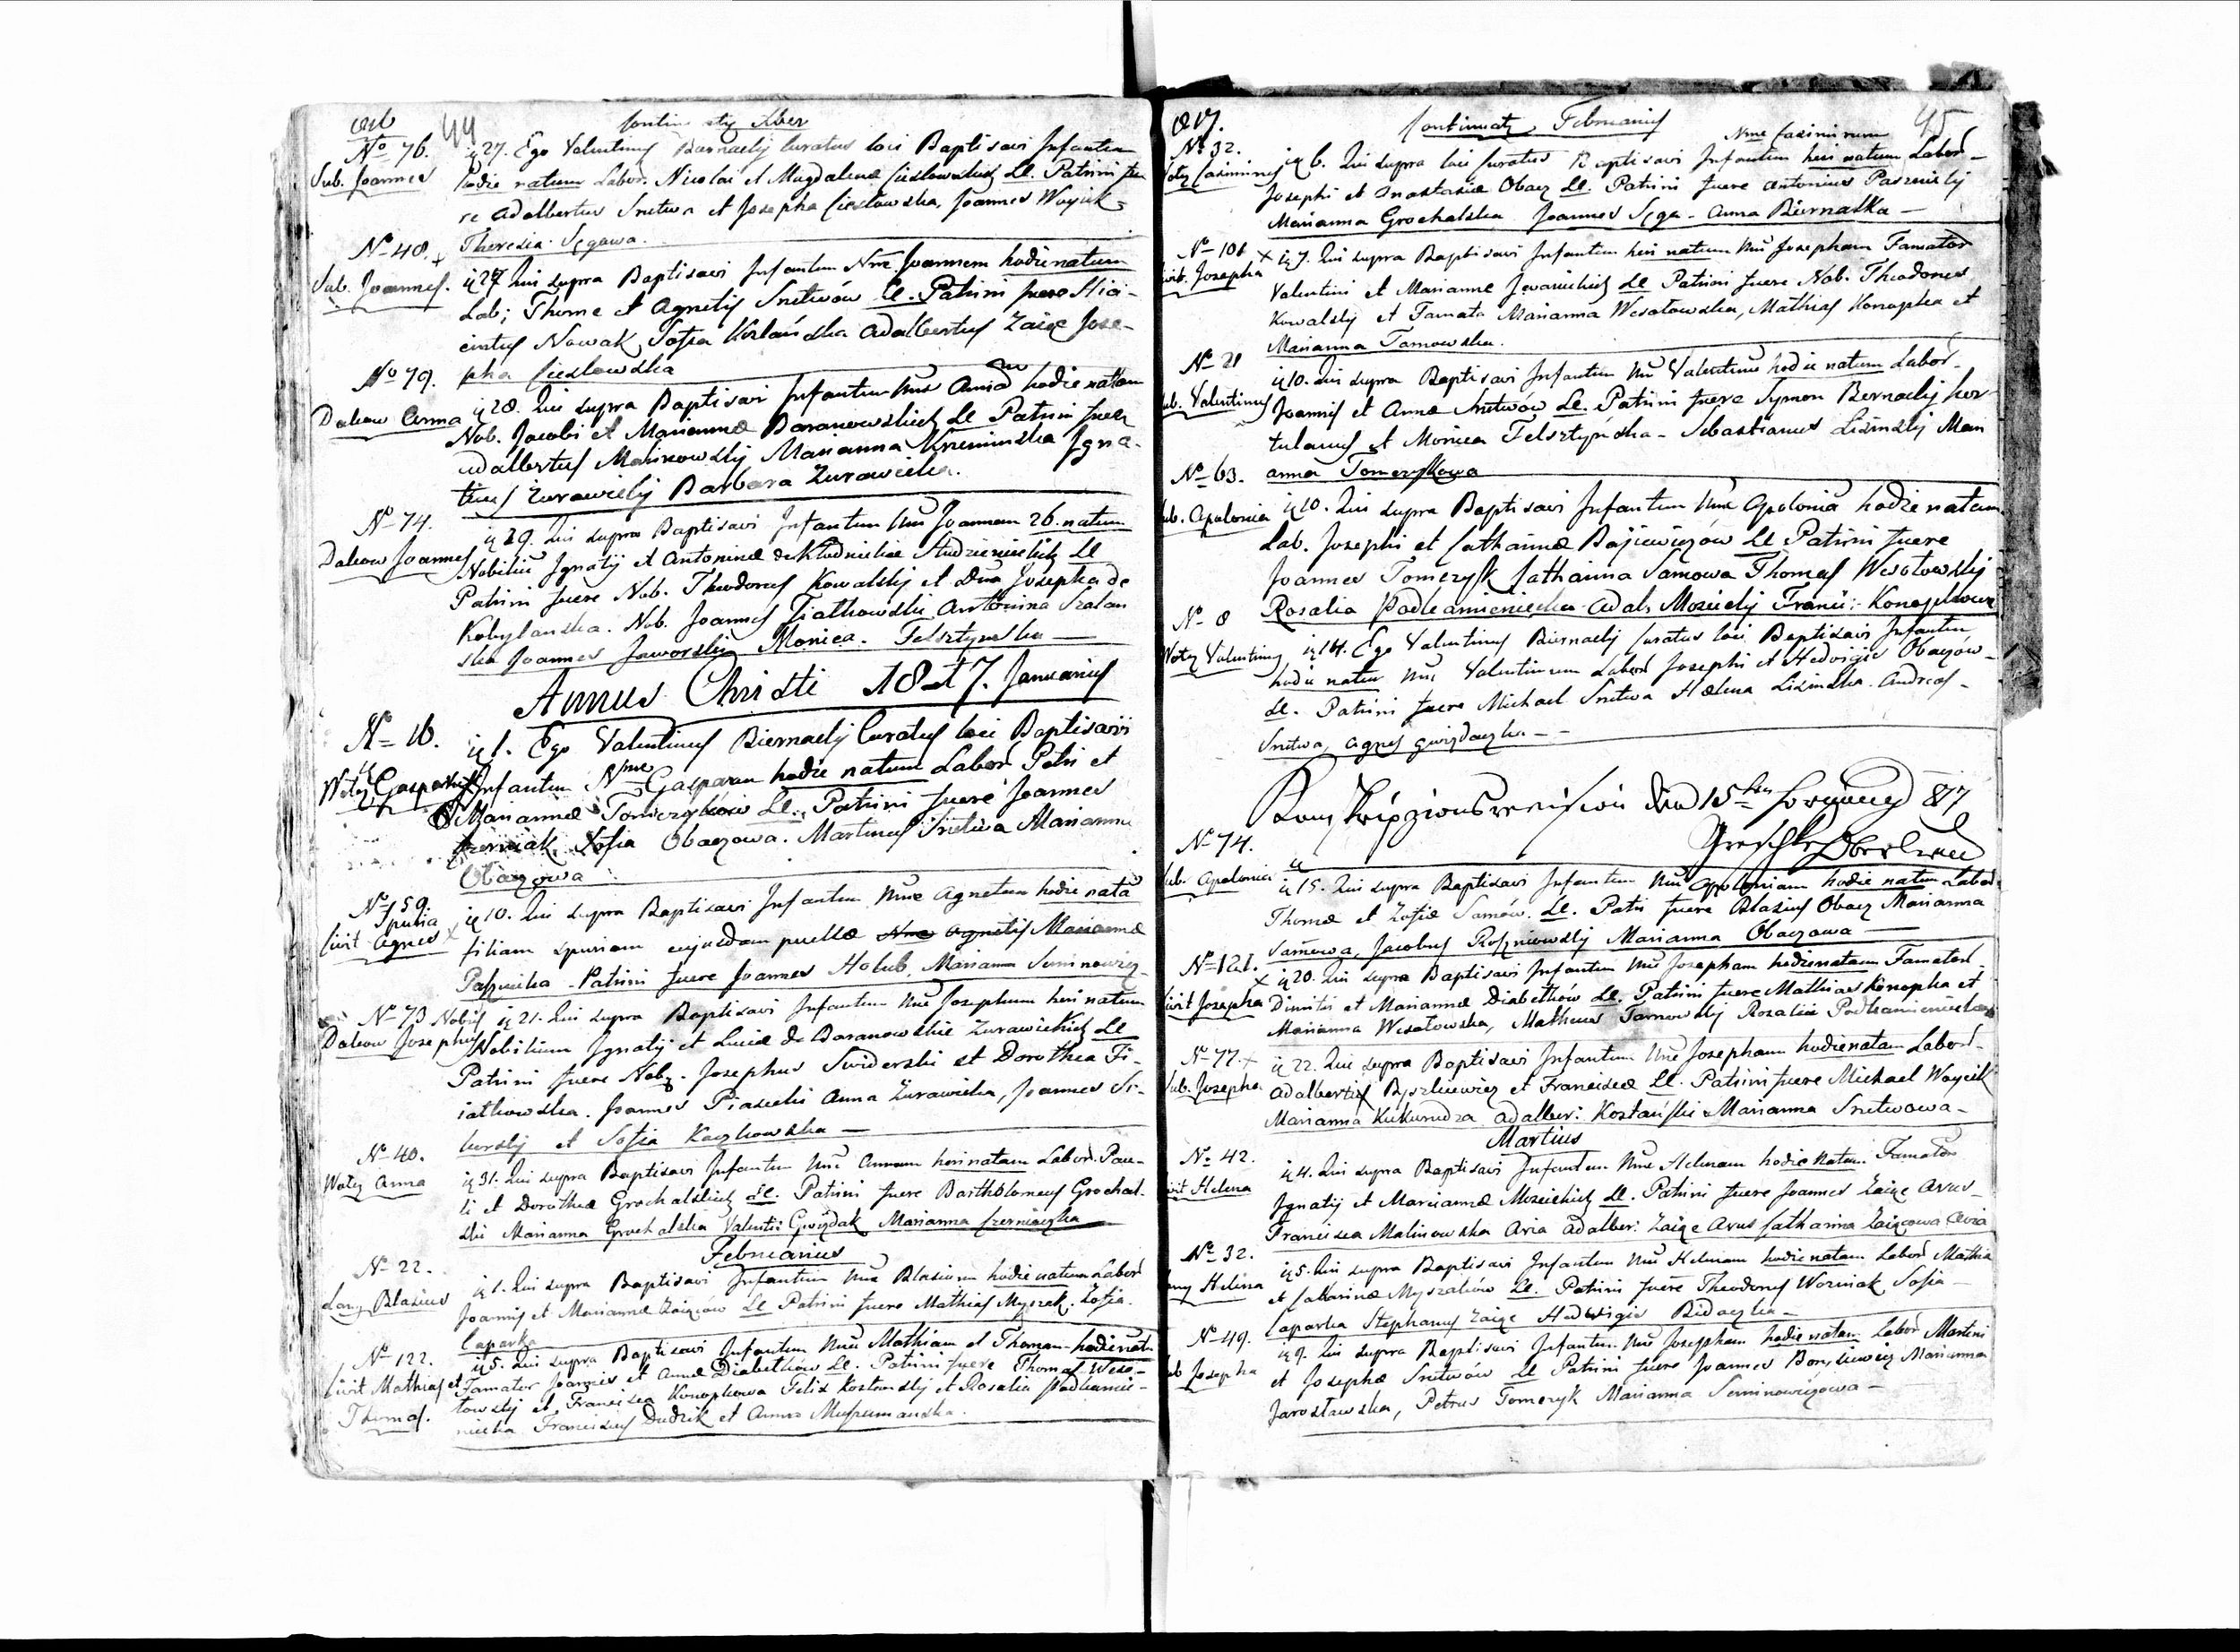 44
Continuatij Xber
No 76.
Sub. Joannes
ią 27. Ego Valentinus Biernacky Curatus loci Baptisavi Infantem
hodie natum Labor. Nicolai et Magdalenæ Cieslowskich LL. Patrini fue
re Adalbertus Snitwa et Josepha Cieslowska, Joannes Woycik
Theresia Sęgawa.
No 48.
Sub. Joannes.
ią 27 Qui supra Baptisavi Infantem Nne. Joannem hodie natum
Lab; Thome et Agnetis Snitwów LL. Patrini fuere Hia-
cintus Nowak, Sofia Kozlańska Adalbertus Zaięc Jose-
pha Cieslowska
No 79.
Daleow Anna
ią 28. Qui supra Baptisavi Infantem Nne Annã hodie natam
Nob. Jacobi et Mariannæ Baranowskich LL Patrini fuere
Adalbertus Malinowsky Marianna Krzeminska Igna-
tius Zurawicky Barbara Zurawicka.
No 74.
Daleow Joannes
ią 29. Qui supra Baptisavi Infantem Nne Joannem 26. natum
Nobiliũ Ignatij et Antoninæ de Kłodnickie Studzienickich LL
Patrini fuere Nob. Theodorus Kowalsky et Dna Josepha de
Kobylanska. Nob. Joannes Fiatkowski Antonina Szalan
ska Joannes Jaworsky Monica Felsztynska —
Annus Christi 1817. Januarius
No 16.
Woty Gasparus
ią 1. Ego Valentinus Biernacky Curatus loci Baptisavi
Infantem Nme Gasparem hodie natum Labor Petri et
Mariannæ Tomczyków LL. Patrini fuere Joannes
Czerniak Zofia Obaczowa. Martinus Snitwa Marianna
Obaczowa
No 159.
Spuria
Civit Agnes
ią 10. Qui supra Baptisavi Infantem Nne Agnetem hodie natã
filiam spuriam cujusdam puellæ Nne Agnetis Mariannæ
Patrini fuere Joannes Holub, Marianna Seminowicz
No 73 Nobilis
Daleow Josephus
ią 21. Qui supra Baptisavi Infantem Nne Josephum heri natum
Nobilium Ignatij et Luciæ de Baranowskie Zurawickich LL
Patrini fuere Nob. Josephus Swiderski et Dorothea Fi-
iatkowska. Joannes Piasecki Anna Zurawicka, Joannes Si-
korsky et Sofia Kaczkowska —
No 40.
Woty Anna
ią 31. Qui supra Baptisavi Infantem Nne Annam heri natam Labor. Pau-
li et Dorotheæ Grochalskich LL. Patrini fuere Bartholomeus Grochal-
ski Marianna Grochalska Valenti: Gwizdak Marianna Czerniaczka
Februarius
No 22.
Lany Blasius
ią 1. Qui supra Baptisavi Infantem Nne Blasium hodie natum Labor
Joannis et Mariannæ Zaięców LL Patrini fuere Mathias Myszak. Zofia
Caparka
No 122.
Civit Mathias et
Thomas.
ią 5. Qui supra Baptisavi Infantem Nne Mathiam et Thomam hodie nat
Famator Joannis et Annæ Diabetkow LL. Patrini fuere Thomas Weso-
towsky et Francisca Konopkowa Felix Kostowsky et Rosalia Podkamie-
niecka Franciscus Dudzik et Anna
817.
45
Continuatij Februarius
No 32.
Woty Casimirus
Nme Casimirum
ią 6. Qui supra loci Curatus Baptisavi Infantem heri natum Labor
Josephi et Anastasiæ Obacz LL. Patrini fuere Antonius Pasznicky
Marianna Grochalska Joannes Sęga - Anna Biernatka —
No 101
Civit. Josepha
ią 7. Qui supra Baptisavi Infantem heri natam Nne Josepham Famator
Valentini et Mariannæ Iwanickich LL Patrini fuere Nob. Theodorus
Kowalsky et Famata Marianna Wesotowska, Mathias Konopka et
Marianna Tarnowska.
No 21
Sub. Valentinus
ią 10. Qui supra Baptisavi Infantem Nne Valentinũ hodie natum Labor.
Joannis et Annæ Snitwów LL. Patrini fuere Symon Bernacky hor-
tulanus et Monica Felsztyńska - Sebastianus Lizinsky Mari
anna Tomczykowa
No 63.
Sub. Apolonia
ią 10. Qui supra Baptisavi Infantem Nne Apoloniã hodie natam
Lab. Josephi et Catharinæ Bojiewiczów LL Patrini fuere
Joannes Tomczyk Catharina Samowa Thomas Wesotowsky
Rosalia Podkamieniecka Adal, Mozicky Franci: Konopkowa
No 8
Woty Valentinus
ią 14. Ego Valentinus Biernacky Curatus loci Baptisavi Infantem
hodie natum Nne Valentinum Labor Josephi et Hedvigis Obaczów
LL. Patrini fuere Michael Snitwa Helena Lizinska. Andreas
Snitwa, Agnes Gwizdaczka - -
Konskripzionsrevision den 15ten 817
No 74.
Sub. Apolonia
ią 15. Qui supra Baptisavi Infantem Nne Apoloniam hodie natam Labor
Thomæ et Zofiæ Samów. LL. Patri fuere Blasius Obacz Marianna
Samowa, Jacobus Roszniowsky Marianna Obaczowa —
No 121.
Civit Josepha
ią 20. Qui supra Baptisavi Infantem Nne Josepham hodie natam Famator
Dimitri et Mariannæ Diabetków LL. Patrini fuere Mathias Konopka et
Marianna Wesotowska, Matheus Tarnowsky Rosalia Podkamieniecka
No 77.
Sub. Josepha
ią 22. Qui supra Baptisavi Infantem Nne Josepham hodie natam Labor.
Adalberti Byszkiewicz et Franciscæ LL. Patrini fuere Michael Woycik
Marianna Kukurudza Adalber: Kostański Marianna Snitwowa -
Martius
No 42.
Civit Helena
ią 4. Qui supra Baptisavi Infantem Nne Helenam hodie natam Famator
Ignatij et Mariannæ Mozickich LL. Patrini fuere Joannes Zaięc Avus
Francisca Malinowska Avia Adalber: Zaięc Avus Catharina Zaięcowa Avia
No 32.
Lany Helena
ią 5. Qui supra Baptisavi Infantem Nne Helenam hodie natam Labor Mathiæ
et Catharinæ Myszaków LL. Patrini fuere Theodorus Wozniak Sofia
Caparka Stephanus Zaięc Hedwigis Bidaczka -
No 49.
Sub Josepha
ią 9. Qui supra Baptisavi Infantem Nne Josepham hodie natam Labor Martini
et Josephæ Snitwów LL Patrini fuere Joannes Marianna
Jarostawska, Petrus Tomczyk Marianna Seminowiczowa -